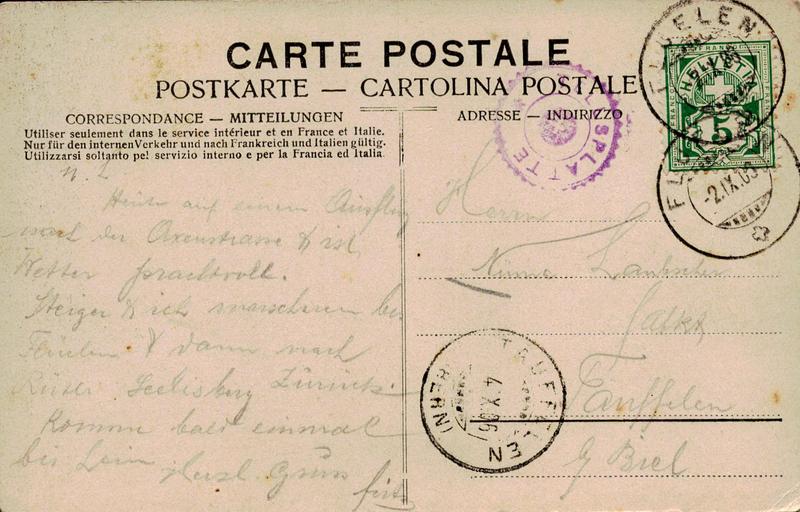 CARTE POSTALE
POSTKARTE — CARTOLINA POSTALE
CORRESPONDANCE — MITTEILUNGEN
Utiliser seulement dans le service intérieur et en France et Italie.
Nur für den internen Verkehr und nach Frankreich und Italien gültig.
Utilizzarsi soltanto pel servizio interno e per la Francia ed Italia
Heute auf einem Ausflug
nach der Axenstrasse & ist
Wetter prachtvoll.
Steiger & ich marschieren
Flüelen & dann nach
Rütli Seelisberg Zürich.
Komme bald einmal
bei
Herzl Gruss
ADRESSE — INDIRIZZO
Herrn
Täuffelen
b/ Biel
FLUELEN
HELVETIA
FRANCO
5
FLUELEN
-2.IX.06
TELLSPLATTE
TÄUFFELEN
4.X.06
(BERN)